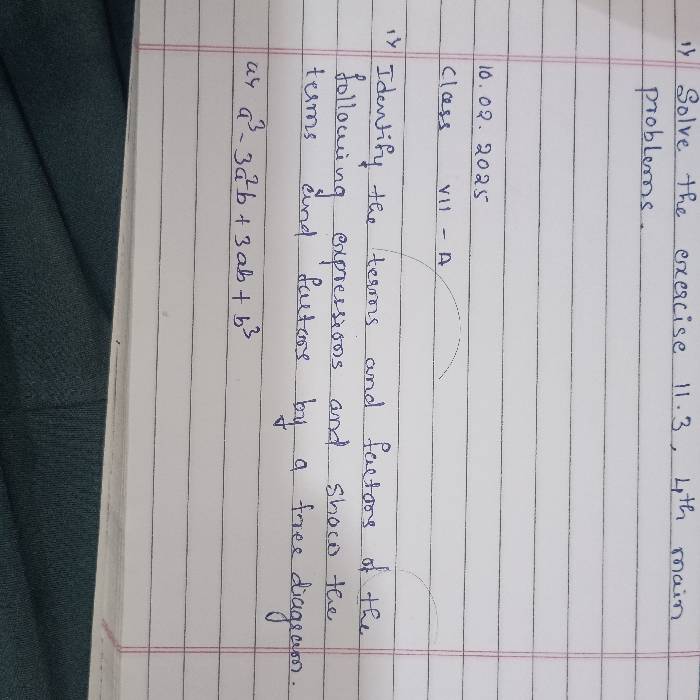 1) Solve the exercise 11.3, 4th main
problems.
10.02.2025
Class VII - A
1) Identify the terms and factors of the
following expressions and show the
terms and factors by a tree diagram.
a) a³ - 3a²b + 3ab + b³